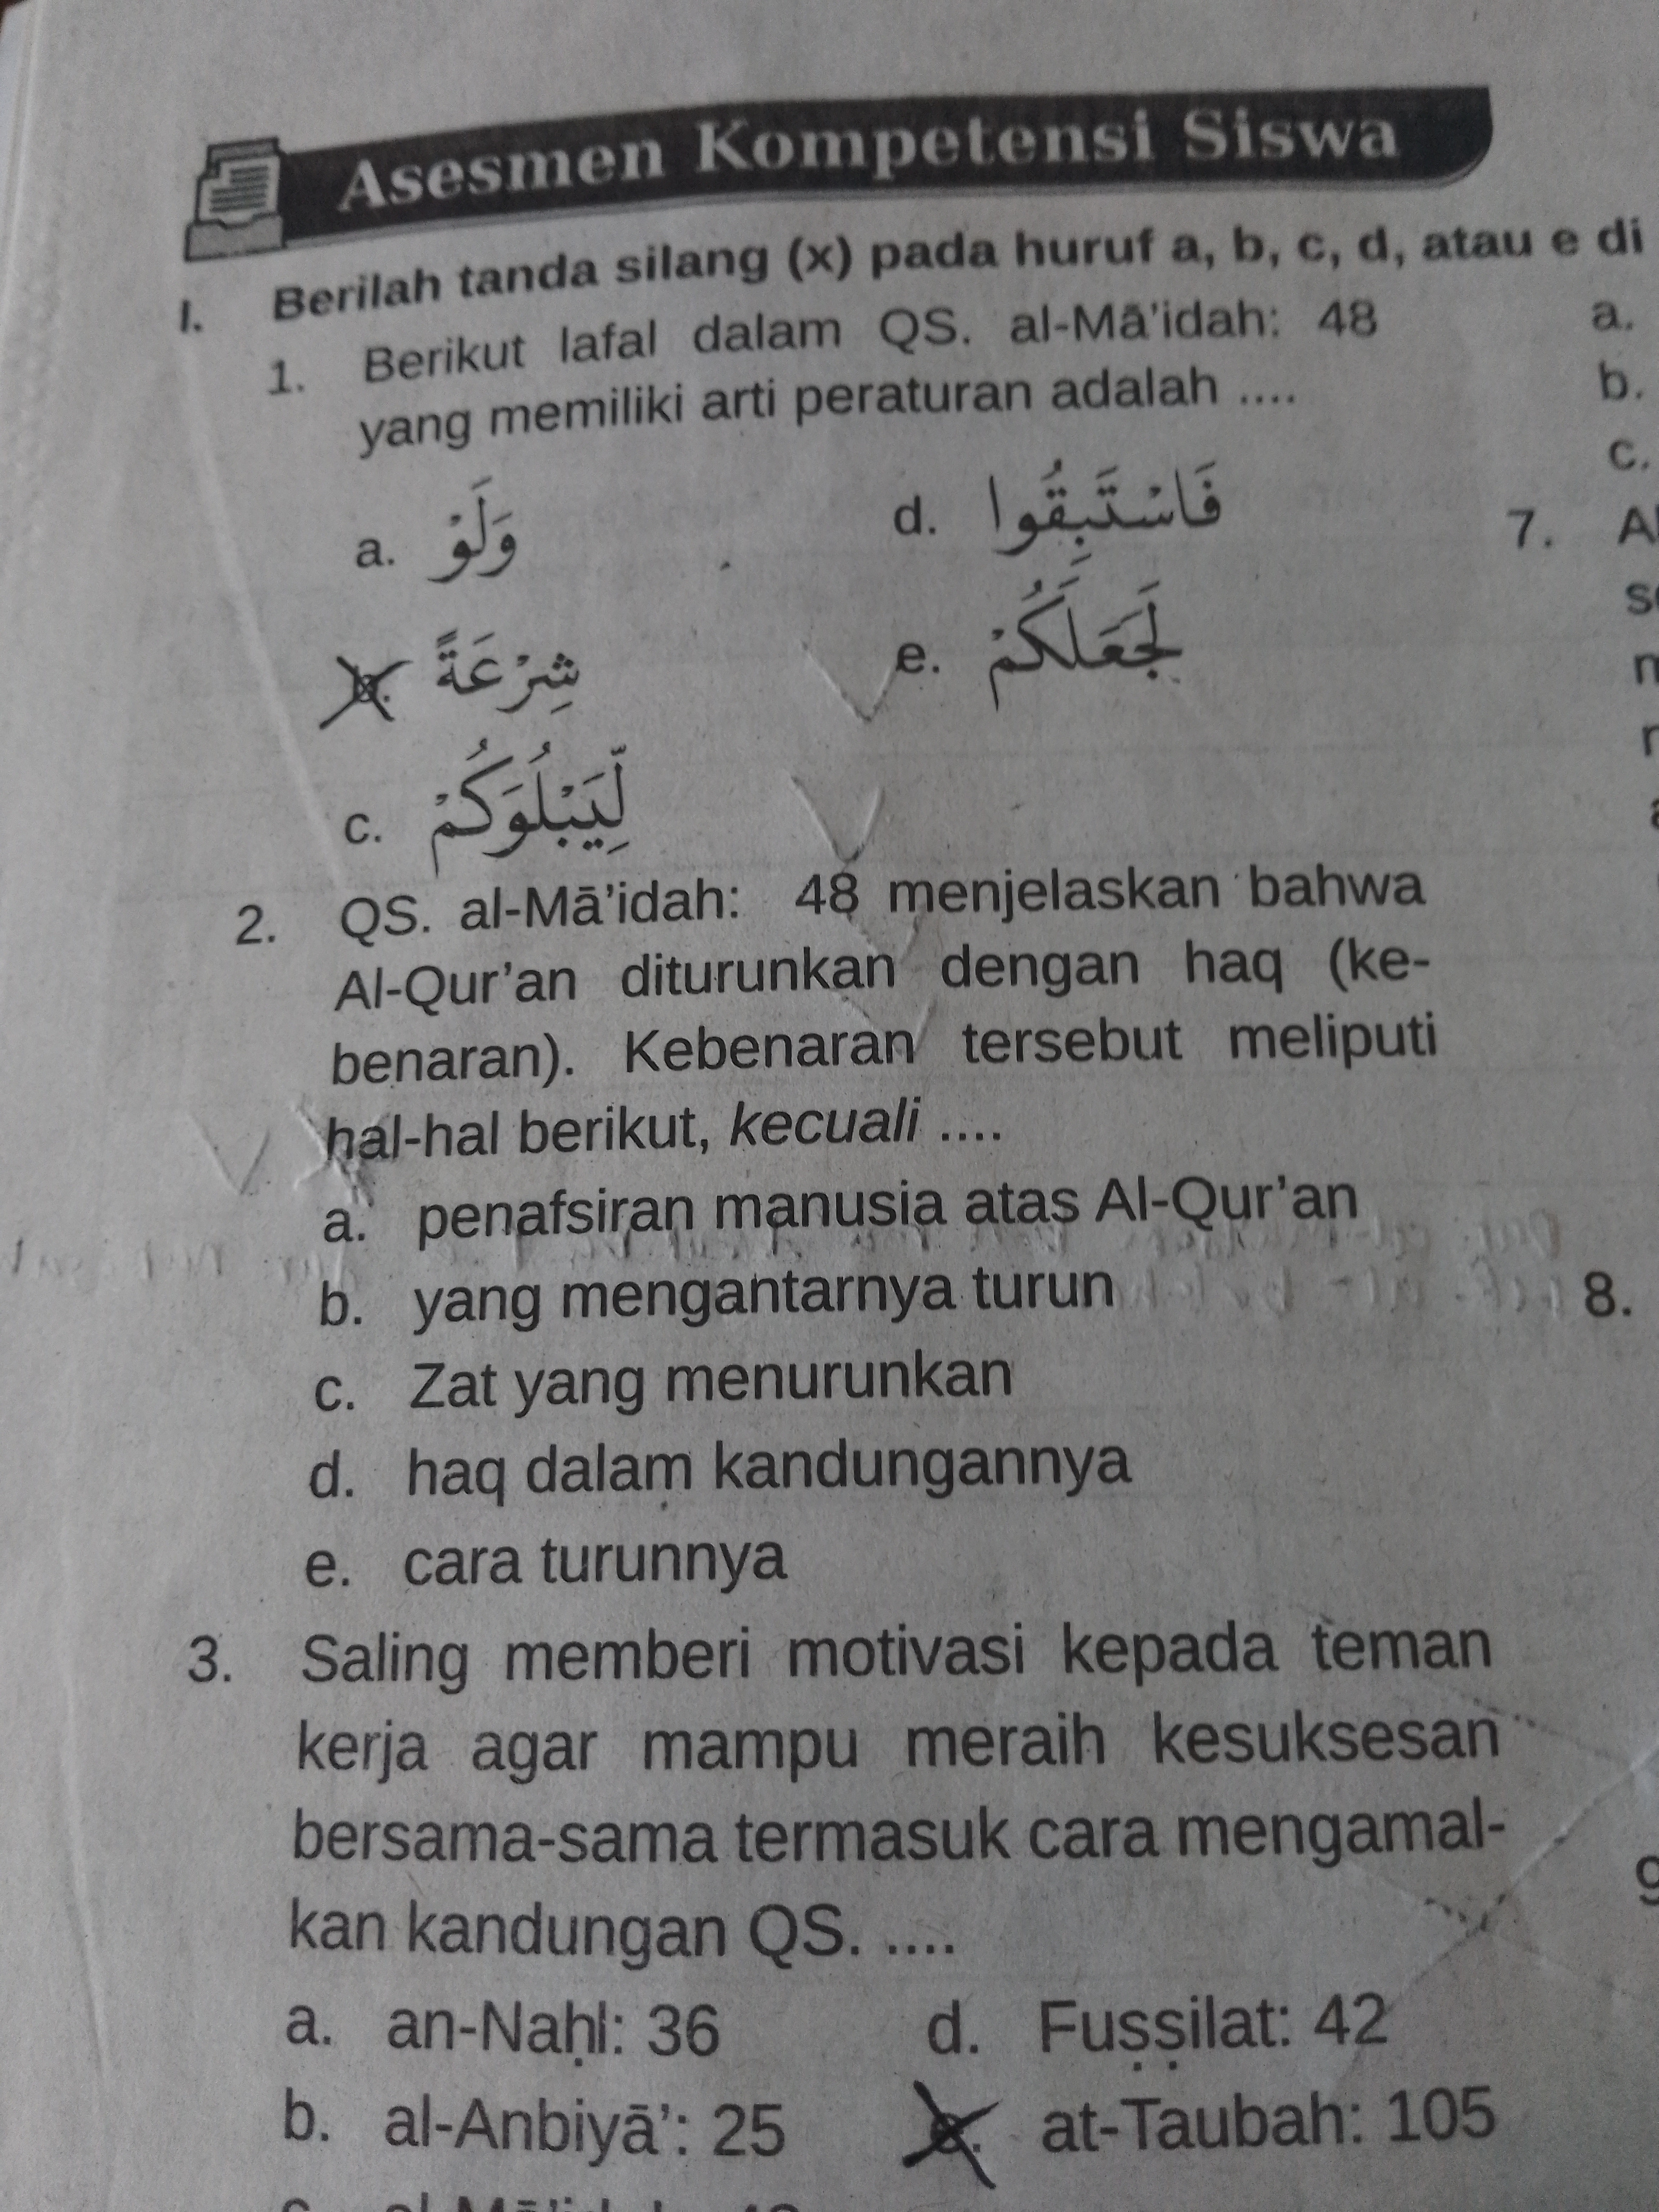 Asesmen Kompetensi Siswa
I. Berilah tanda silang (x) pada huruf a, b, c, d, atau e di
1. Berikut lafal dalam QS. al-Mā'idah: 48
yang memiliki arti peraturan adalah ....
a. وَلَوْ
d. فَاسْتَبِقُوا
شِرْعَةً
e. لَجَعَلَكُمْ
c. لِّيَبْلُوَكُمْ
2. QS. al-Mā'idah: 48 menjelaskan bahwa
Al-Qur'an diturunkan dengan haq (ke-
benaran). Kebenaran tersebut meliputi
hal-hal berikut, kecuali ....
a. penafsiran manusia atas Al-Qur'an
b. yang mengantarnya turun
c. Zat yang menurunkan
d. haq dalam kandungannya
e. cara turunnya
3. Saling memberi motivasi kepada teman
kerja agar mampu meraih kesuksesan
bersama-sama termasuk cara mengamal-
kan kandungan QS. ....
a. an-Naḥl: 36
d. Fuṣṣilat: 42
b. al-Anbiyā': 25
e. at-Taubah: 105
a.
b.
c.
7.
8.